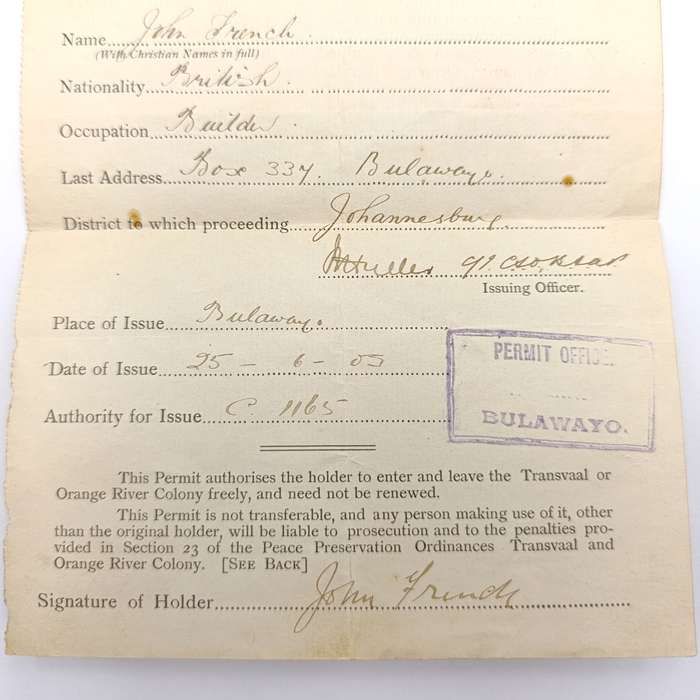 Name John French
(With Christian Names in full)
Nationality British
Occupation Builder
Last Address Box 337. Bulawayo.
District to which proceeding Johannesburg
Issuing Officer.
Place of Issue Bulawayo.
Date of Issue 25 - 6 - 03
Authority for Issue C. 1165
PERMIT OFFICE.
BULAWAYO.
This Permit authorises the holder to enter and leave the Transvaal or
Orange River Colony freely, and need not be renewed.
This Permit is not transferable, and any person making use of it, other
than the original holder, will be liable to prosecution and to the penalties pro-
vided in Section 23 of the Peace Preservation Ordinances Transvaal and
Orange River Colony. [SEE BACK]
Signature of Holder John French